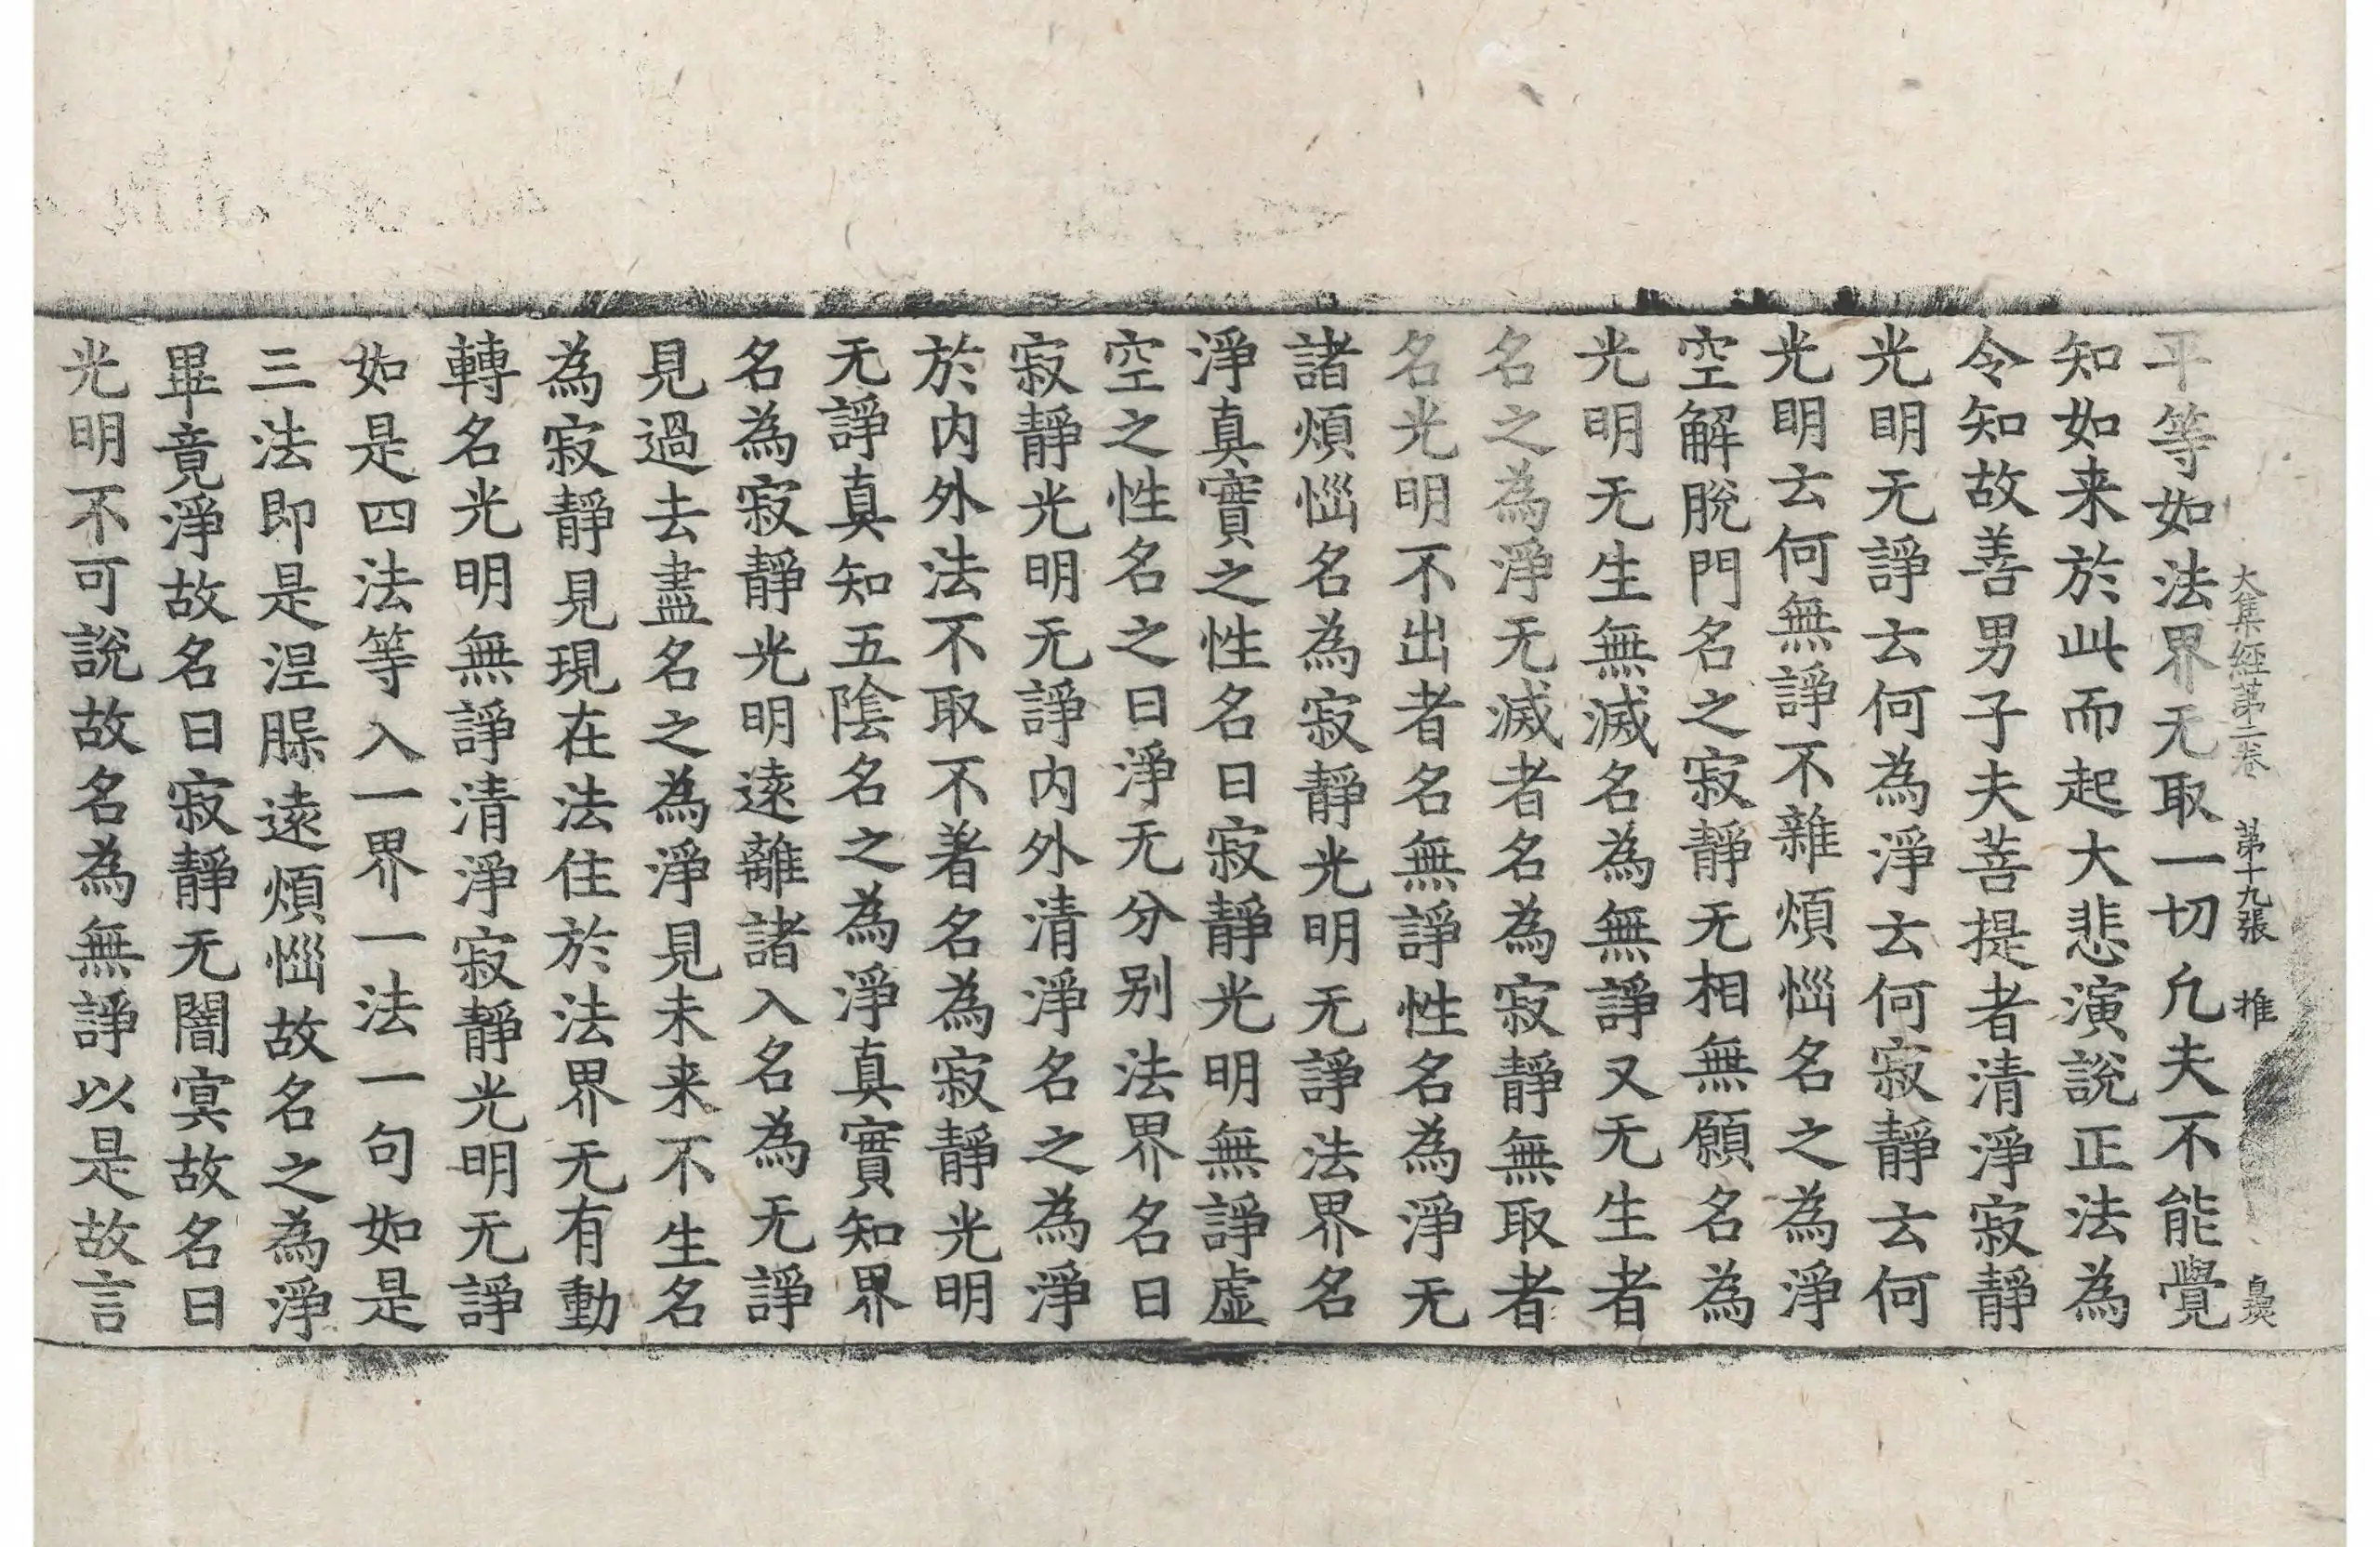 大集經第二卷　第十九張　推
平等如法界无取一切凢夫不能覺
知如来於此而起大悲演說正法為
令知故善男子夫菩提者清淨寂靜
光明无諍云何為淨云何寂靜云何
光明云何無諍不雜煩惱名之為淨
空解脫門名之寂靜无相無願名為
光明无生無滅名為無諍又无生者
名之為淨无滅者名為寂靜無取者
名光明不出者名無諍性名為淨无
諸煩惱名為寂靜光明无諍法界名
淨真實之性名曰寂靜光明無諍虛
空之性名之曰淨无分别法界名曰
寂靜光明无諍内外清淨名之為淨
於内外法不取不著名為寂靜光明
无諍真知五陰名之為淨真實知界
名為寂靜光明遠離諸入名為无諍
見過去盡名之為淨見未来不生名
為寂靜見現在法住於法界无有動
轉名光明無諍清淨寂靜光明无諍
如是四法等入一界一法一句如是
三法即是涅槃遠煩惱故名之為淨
畢竟淨故名曰寂靜无闇冥故名曰
光明不可說故名為無諍以是故言